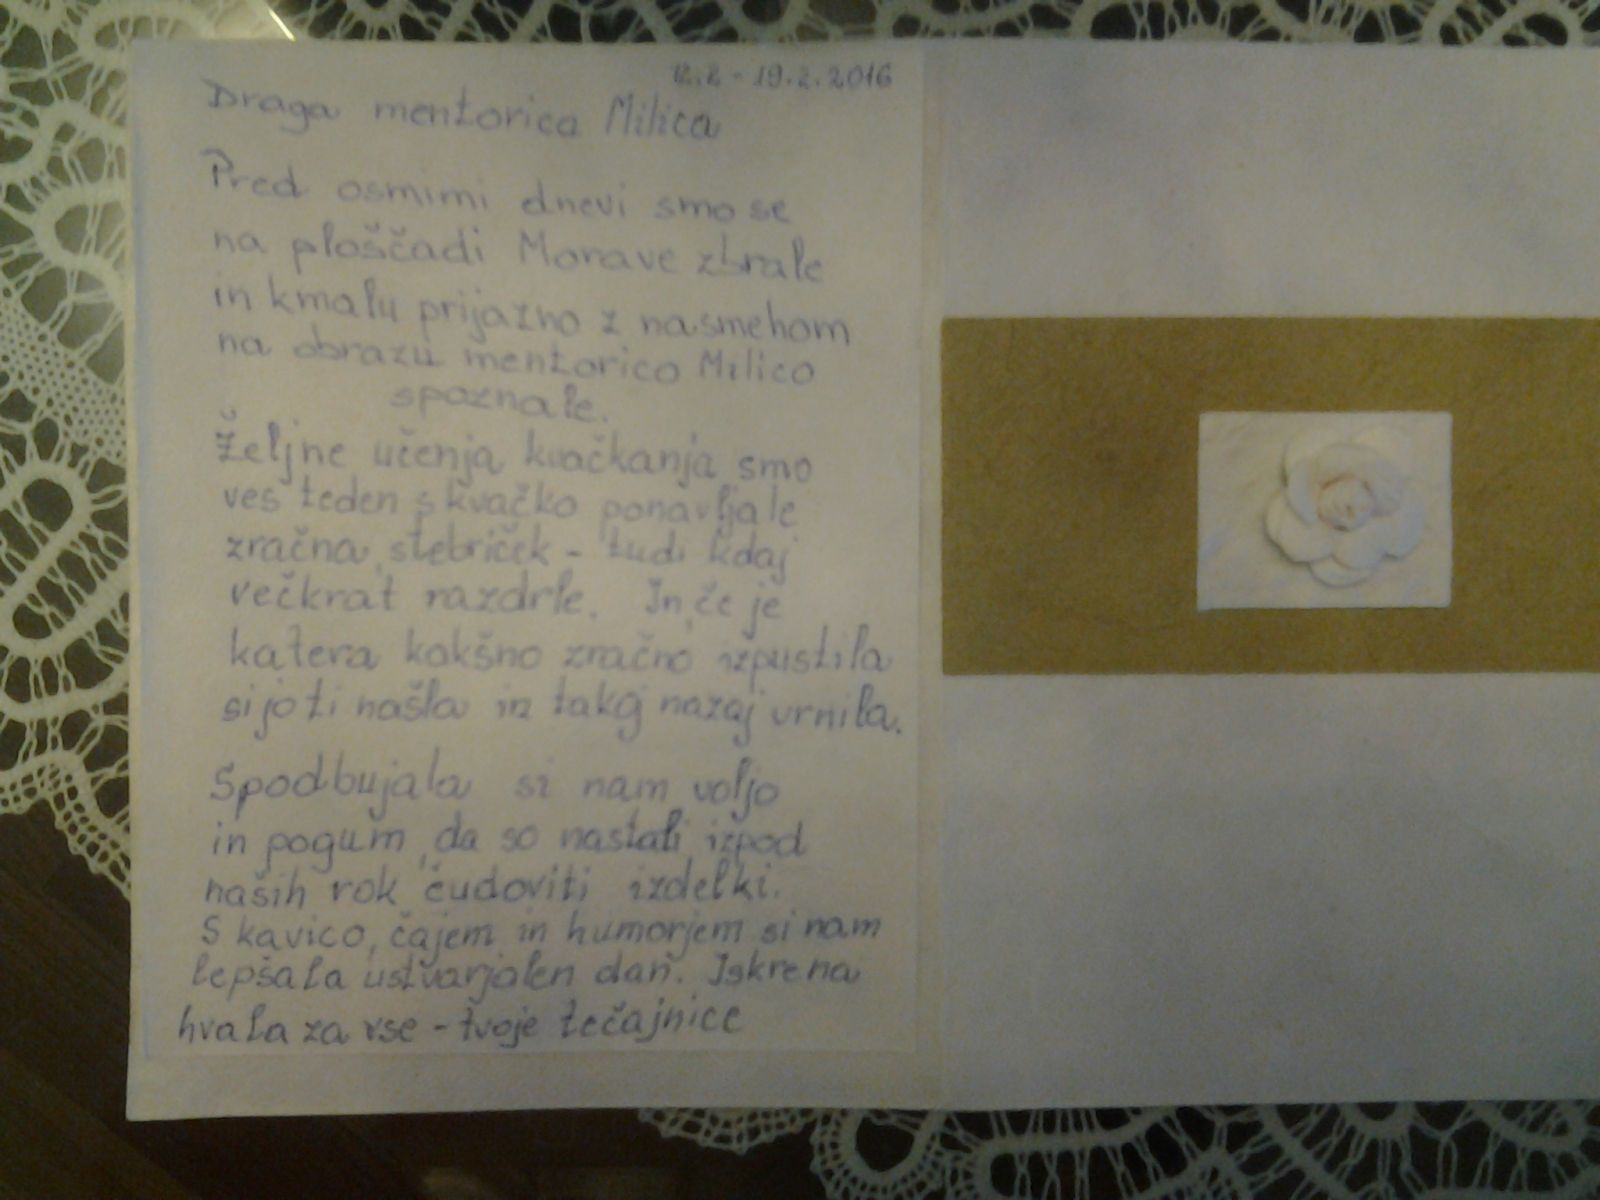 12.2 - 19.2.2016
Draga mentorica Milica
Pred osmimi dnevi smo se
na ploščadi Morave zbrale
in kmalu prijazno z nasmehom
na obrazu mentorico Milico
spoznale.
Željne učenja kvačkanja smo
ves teden s kvačko ponavljale
zračna, stebriček - tudi kdaj
večkrat razdrle. In, če je
katera kakšno zračno izpustila
si jo ti našla in takoj nazaj vrnila.
Spodbujala si nam voljo
in pogum, da so nastali izpod
naših rok čudoviti izdelki.
S kavico, čajem in humorjem si nam
lepšala ustvarjalen dan. Iskrena
hvala za vse - tvoje tečajnice